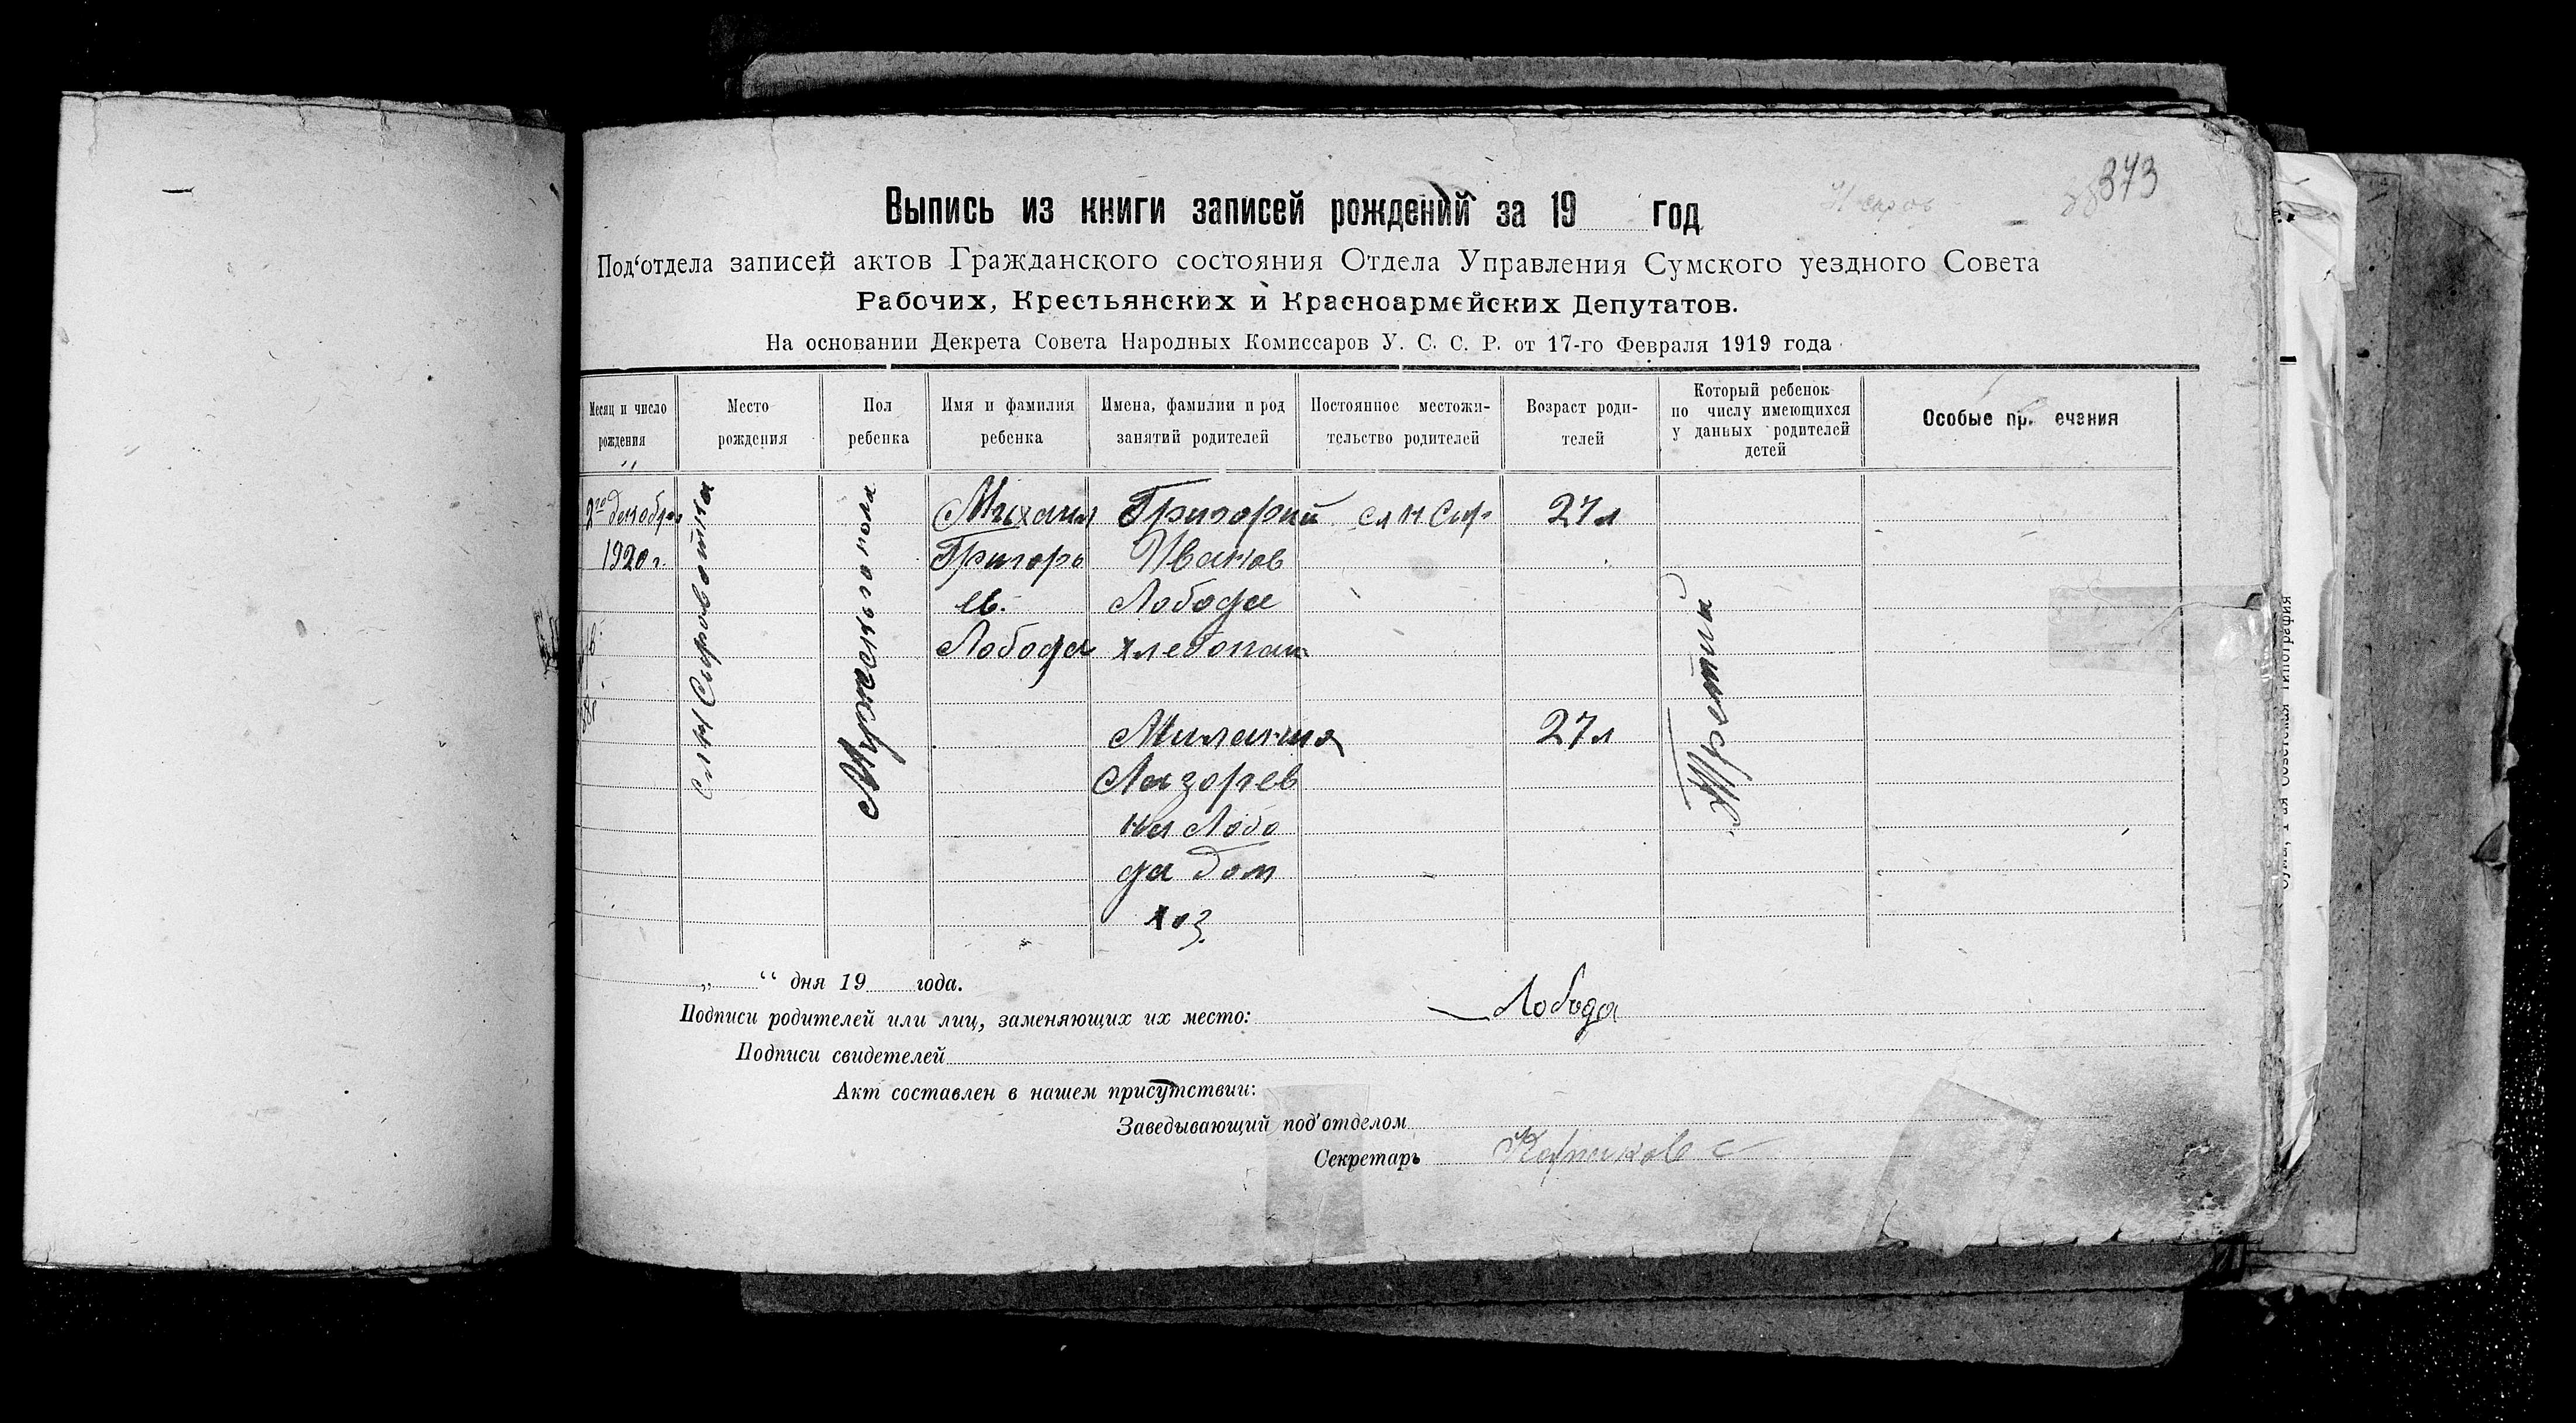 373
Выпись из книги записей рождений за 19 год
Под‘отдела записей актов Гражданского состояния Отдела Управления Сумского уездного Совета
Рабочих, Крестьянских и Красноармейских Депутатов.
На основании Декрета Совета Народных Комиссаров У. С. С. Р. от 17-го Февраля 1919 года
Месяц и число
рождения
Место
рождения
Пол
ребенка
Имя и фамилия
ребенка
Имена, фамилии и род
занятий родителей
Постоянное местожи-
тельство родителей
Возраст роди-
телей
Который ребенок
по числу имеющихся
у данных родителей
детей
Особые пр ечания
2го декабря
1920 г.
сл Н Сыроватка
Мужеского пола
Михаил
Григорь
ев.
Лобода
Григорий
Иванов
Лобода
хлебопаш
Милания
Лазорев
на Лобо
да дом
хоз.
сл Н Сыр.
27 л
27 л
Третий
„ “ дня 19 года.
Подписи родителей или лиц, заменяющих их место: Лобода
Подписи свидетелей
Акт составлен в нашем присутствии:
Заведывающий под‘отделом
Секретарь